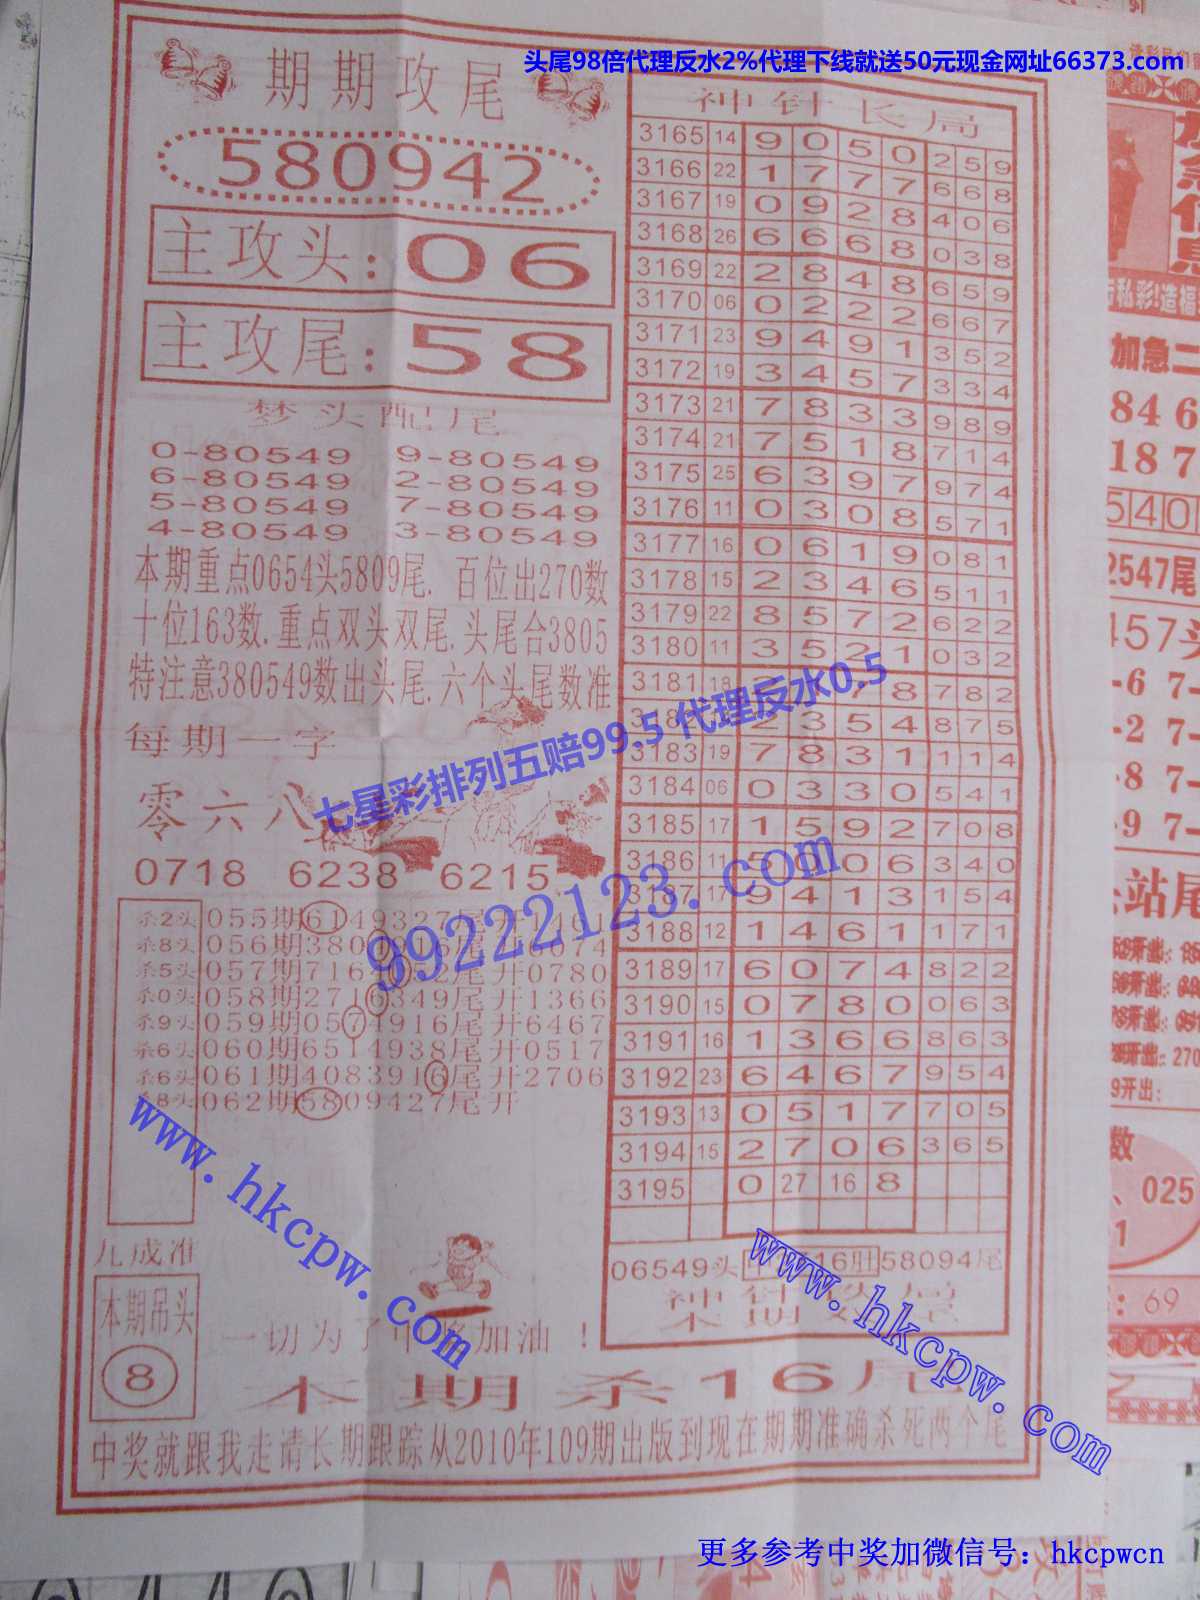 头尾98倍代理反水2%代理下线就送50元现金网址66373.com
期期攻尾
580942
主攻头:06
主攻尾:58
梦头配尾
0-80549 9-80549
6-80549 2-80549
5-80549 7-80549
4-80549 3-80549
本期重点0654头5809尾.百位出270数
十位163数.重点双头双尾.头尾合3805
特注意380549数出头尾.六个头尾数准
每期一字
零六八
0718 6238 6215
杀2头 055期6149327尾开1161
杀8头 056期380 916尾开6074
杀5头 057期716 2尾开0780
杀0头 058期2716349尾开1366
杀9头 059期0574916尾开6467
杀6头 060期6514938尾开0517
杀6头 061期4083916尾开2706
杀8头 062期5809427尾开
九成准
本期吊头
8
一切为了中 加油!
神针长局
3165 14 9 0 5 0 2 5 9
3166 22 1 7 7 7 6 6 8
3167 19 0 9 2 8 4 0 6
3168 26 6 6 6 8 0 3 8
3169 22 2 8 4 8 6 5 9
3170 06 0 2 2 2 6 6 7
3171 23 9 4 9 1 3 5 2
3172 19 3 4 5 7 3 3 4
3173 21 7 8 3 3 9 8 9
3174 21 7 5 1 8 7 1 4
3175 25 6 3 9 7 9 7 4
3176 11 0 3 0 8 5 7 1
3177 16 0 6 1 9 0 8 1
3178 15 2 3 4 6 5 1 1
3179 22 8 5 7 2 6 2 2
3180 11 3 5 2 1 0 3 2
3181 18 7 8 7 8 2
3182 2 3 5 4 8 7 5
3183 19 7 8 3 1 1 1 4
3184 06 0 3 3 0 5 4 1
3185 17 1 5 9 2 7 0 8
3186 11 5 0 0 6 3 4 0
3187 17 9 4 1 3 1 5 4
3188 12 1 4 6 1 1 7 1
3189 17 6 0 7 4 8 2 2
3190 15 0 7 8 0 0 6 3
3191 16 1 3 6 6 8 6 3
3192 23 6 4 6 7 9 5 4
3193 13 0 5 1 7 7 0 5
3194 15 2 7 0 6 3 6 5
3195 0 27 16 8
06549头 16肚58094尾
本期杀16尾
中奖就跟我走请长期跟踪从2010年109期出版到现在期期准确杀死两个尾
七星彩排列五赔99.5 代理反水0.5
99222123.com
www.hkcpw.com
www.hkcpw.com
行私彩!造福
加急二
84 6
18 7
540
2547尾
457头
-6 7-
-2 7-
-8 7-
-9 7-
站尾
9开出:
数
、025
1
: 69
更多参考中奖加微信号：hkcpwcn